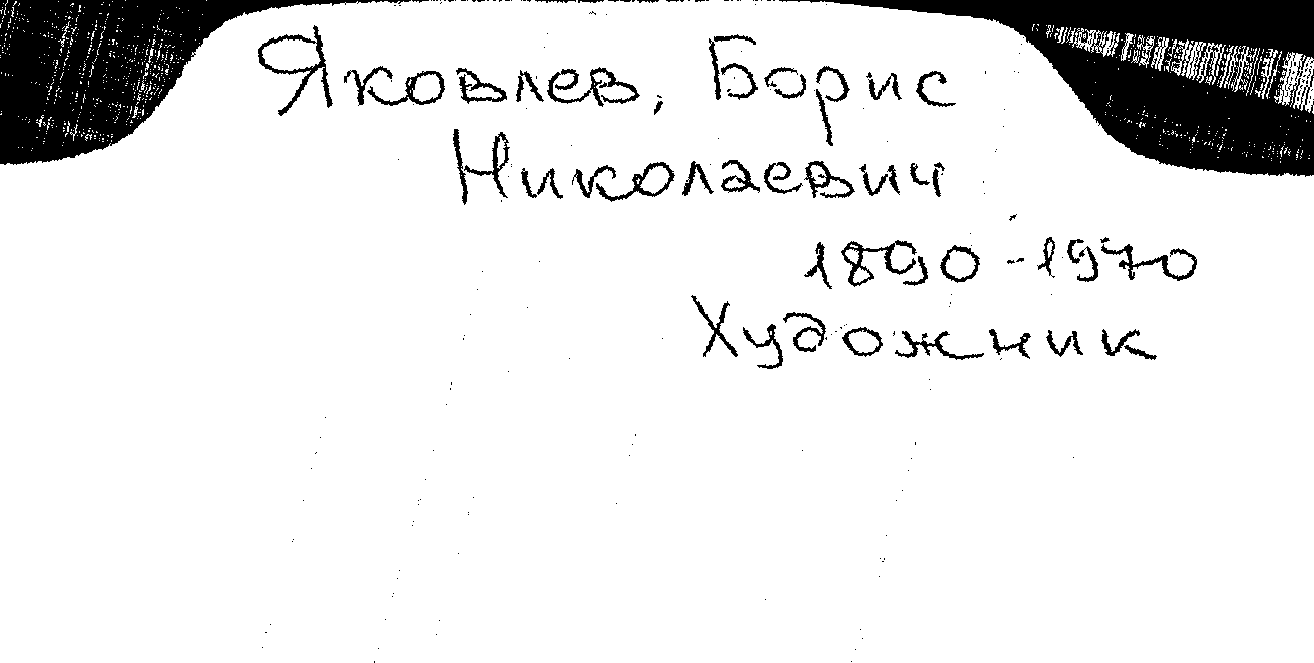 Яковлев, Борис
Николаевич
1890-1970
Художник